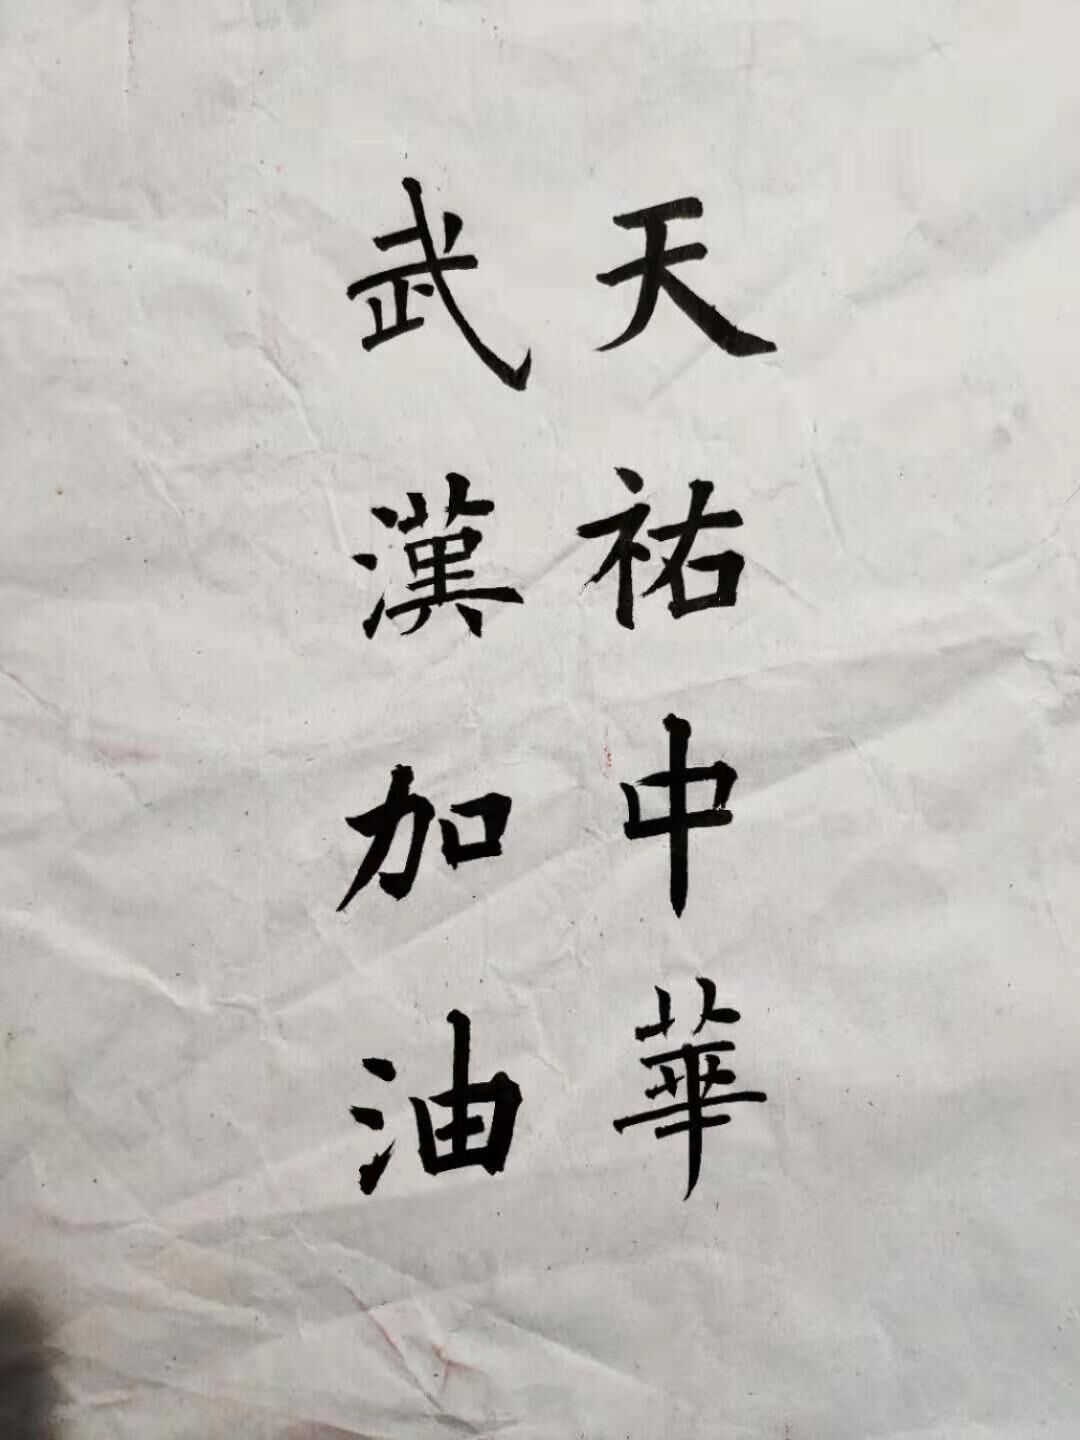 天祐中華
武漢加油